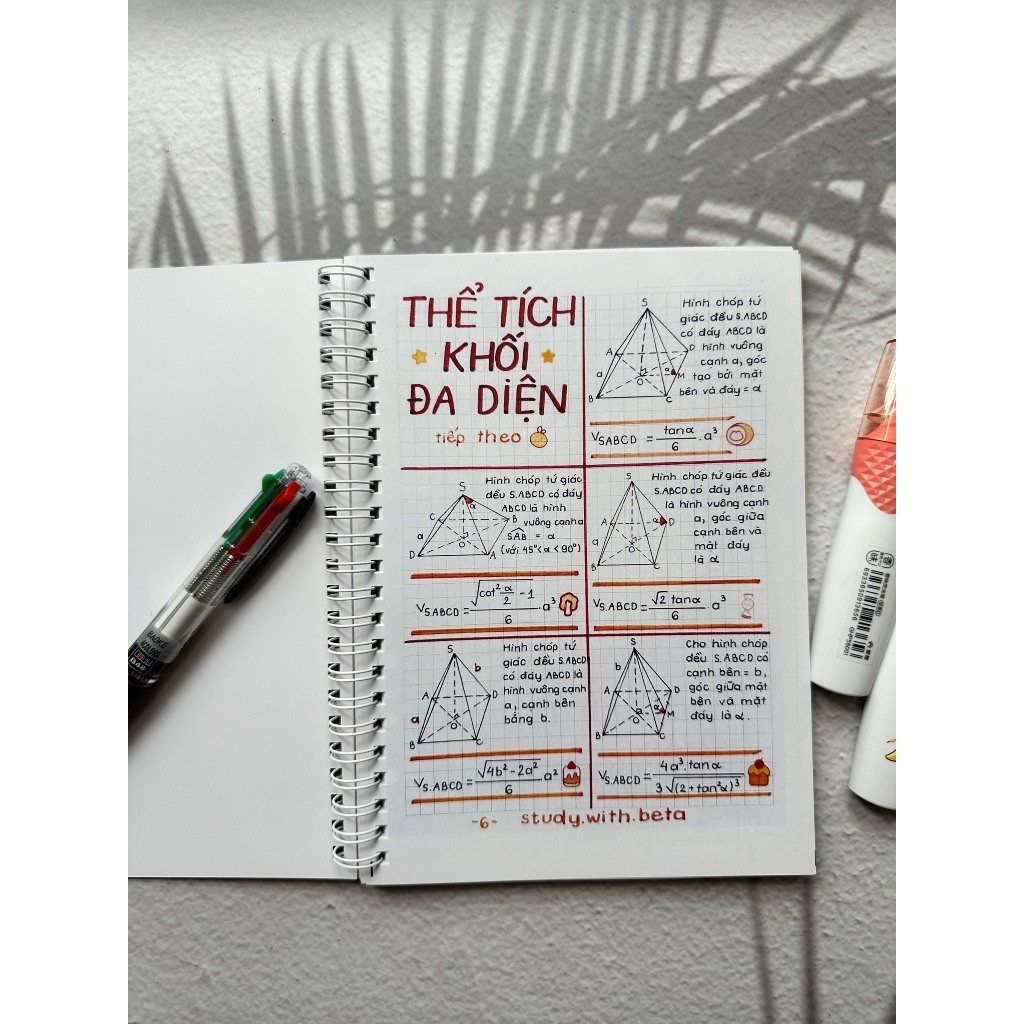 THỂ TÍCH
KHỐI
ĐA DIỆN
tiếp theo
S
A
D
a
B
C
O
α
M
Hình chóp tứ
giác đều S.ABCD
có đáy ABCD là
hình vuông
cạnh a, góc
tạo bởi mặt
bên và đáy = α
VSABCD = tanα/6 . a³
S
α
C
B
a
D
O
A
Hình chóp tứ giác
đều S.ABCD có đáy
ABCD là hình
vuông cạnh a
SAB = α
(với 45° < α < 90°)
VS.ABCD = √(cot² α/2 - 1)/6 . a³
S
A
α
D
a
B
O
C
Hình chóp tứ giác đều
S.ABCD có đáy ABCD
là hình vuông cạnh
a, góc giữa
cạnh bên và
mặt đáy
là α
VS.ABCD = √2 tanα/6 . a³
S
b
A
D
a
O
B
C
Hình chóp tứ
giác đều S.ABCD
có đáy ABCD là
hình vuông cạnh
a, cạnh bên
bằng b.
VS.ABCD = √(4b² - 2a²)/6 . a²
S
b
A
D
α
M
O
B
C
Cho hình chóp
đều S.ABCD có
cạnh bên = b,
góc giữa mặt
bên và mặt
đáy là α.
VS.ABCD = 4a³. tanα/3√(2+tan²α)³
-6- study.with.beta
BAOKE
4 COLORS
B46
6933650913656